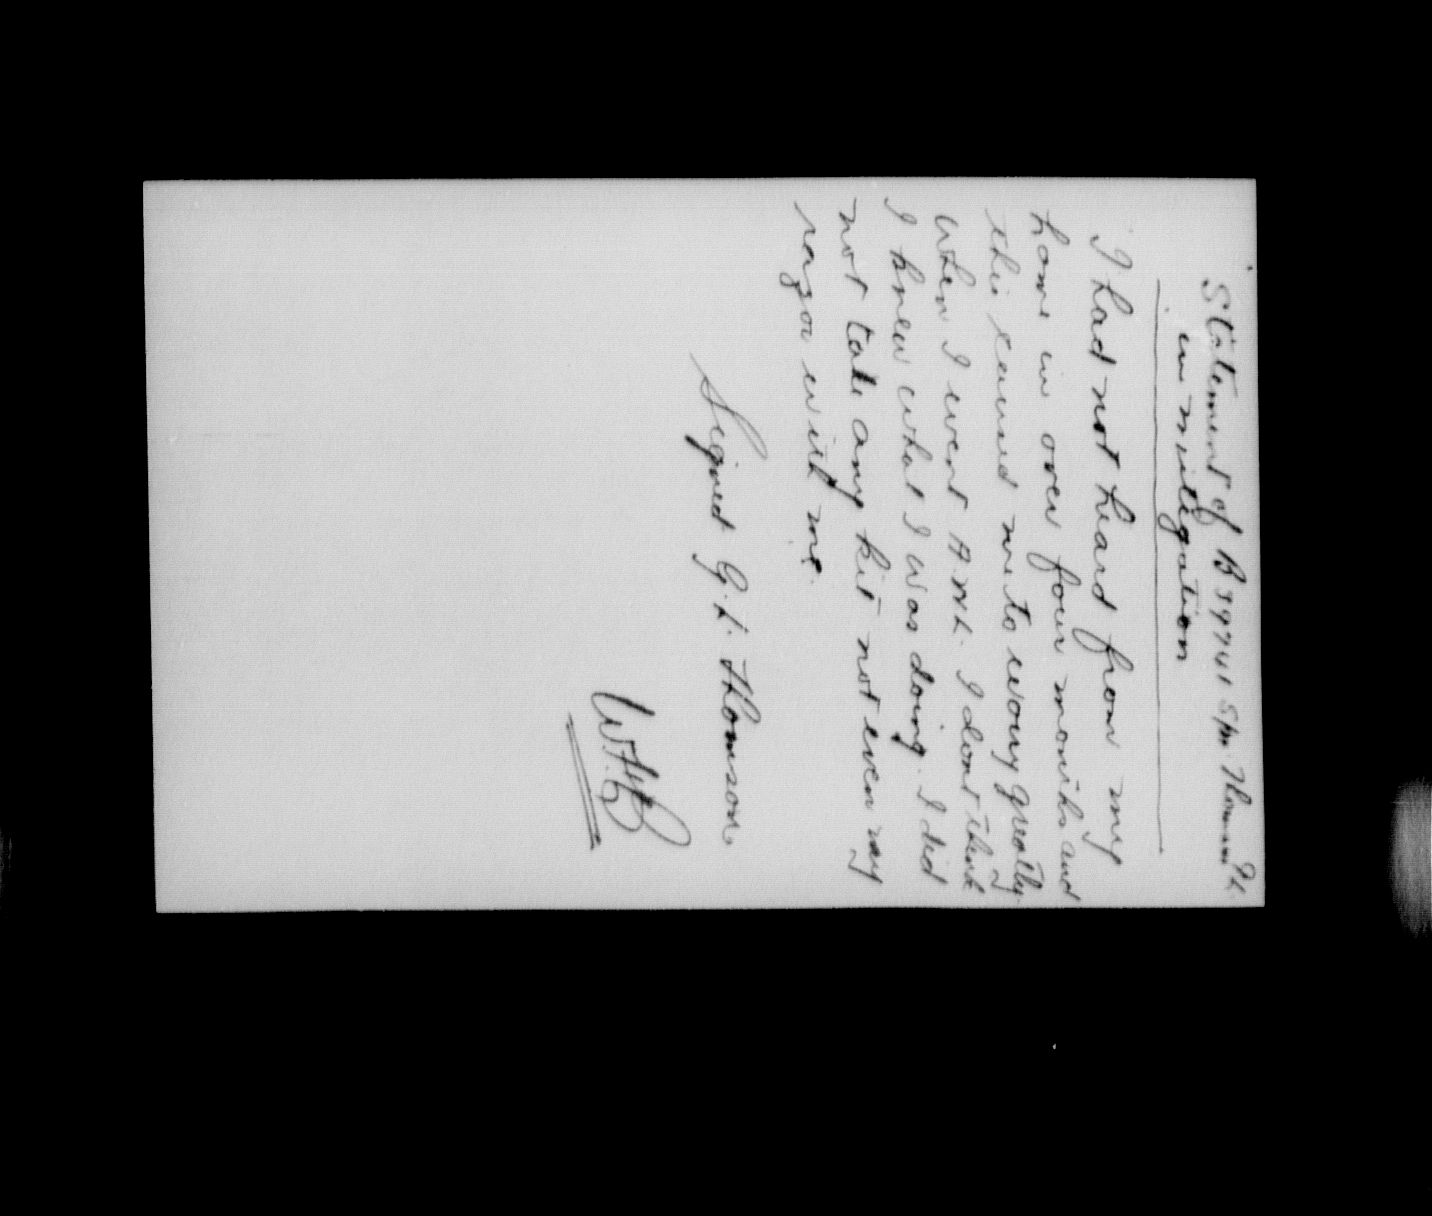 Statement of B39741 Spr Thomson G.L.
in mitigation
I had not heard from my
home in over four months and
this caused me to worry greatly.
When I went A.W.L. I dont think
I knew what I was doing. I did
not take any kit not even my
razor with me.
Signed G.L. Thomson.